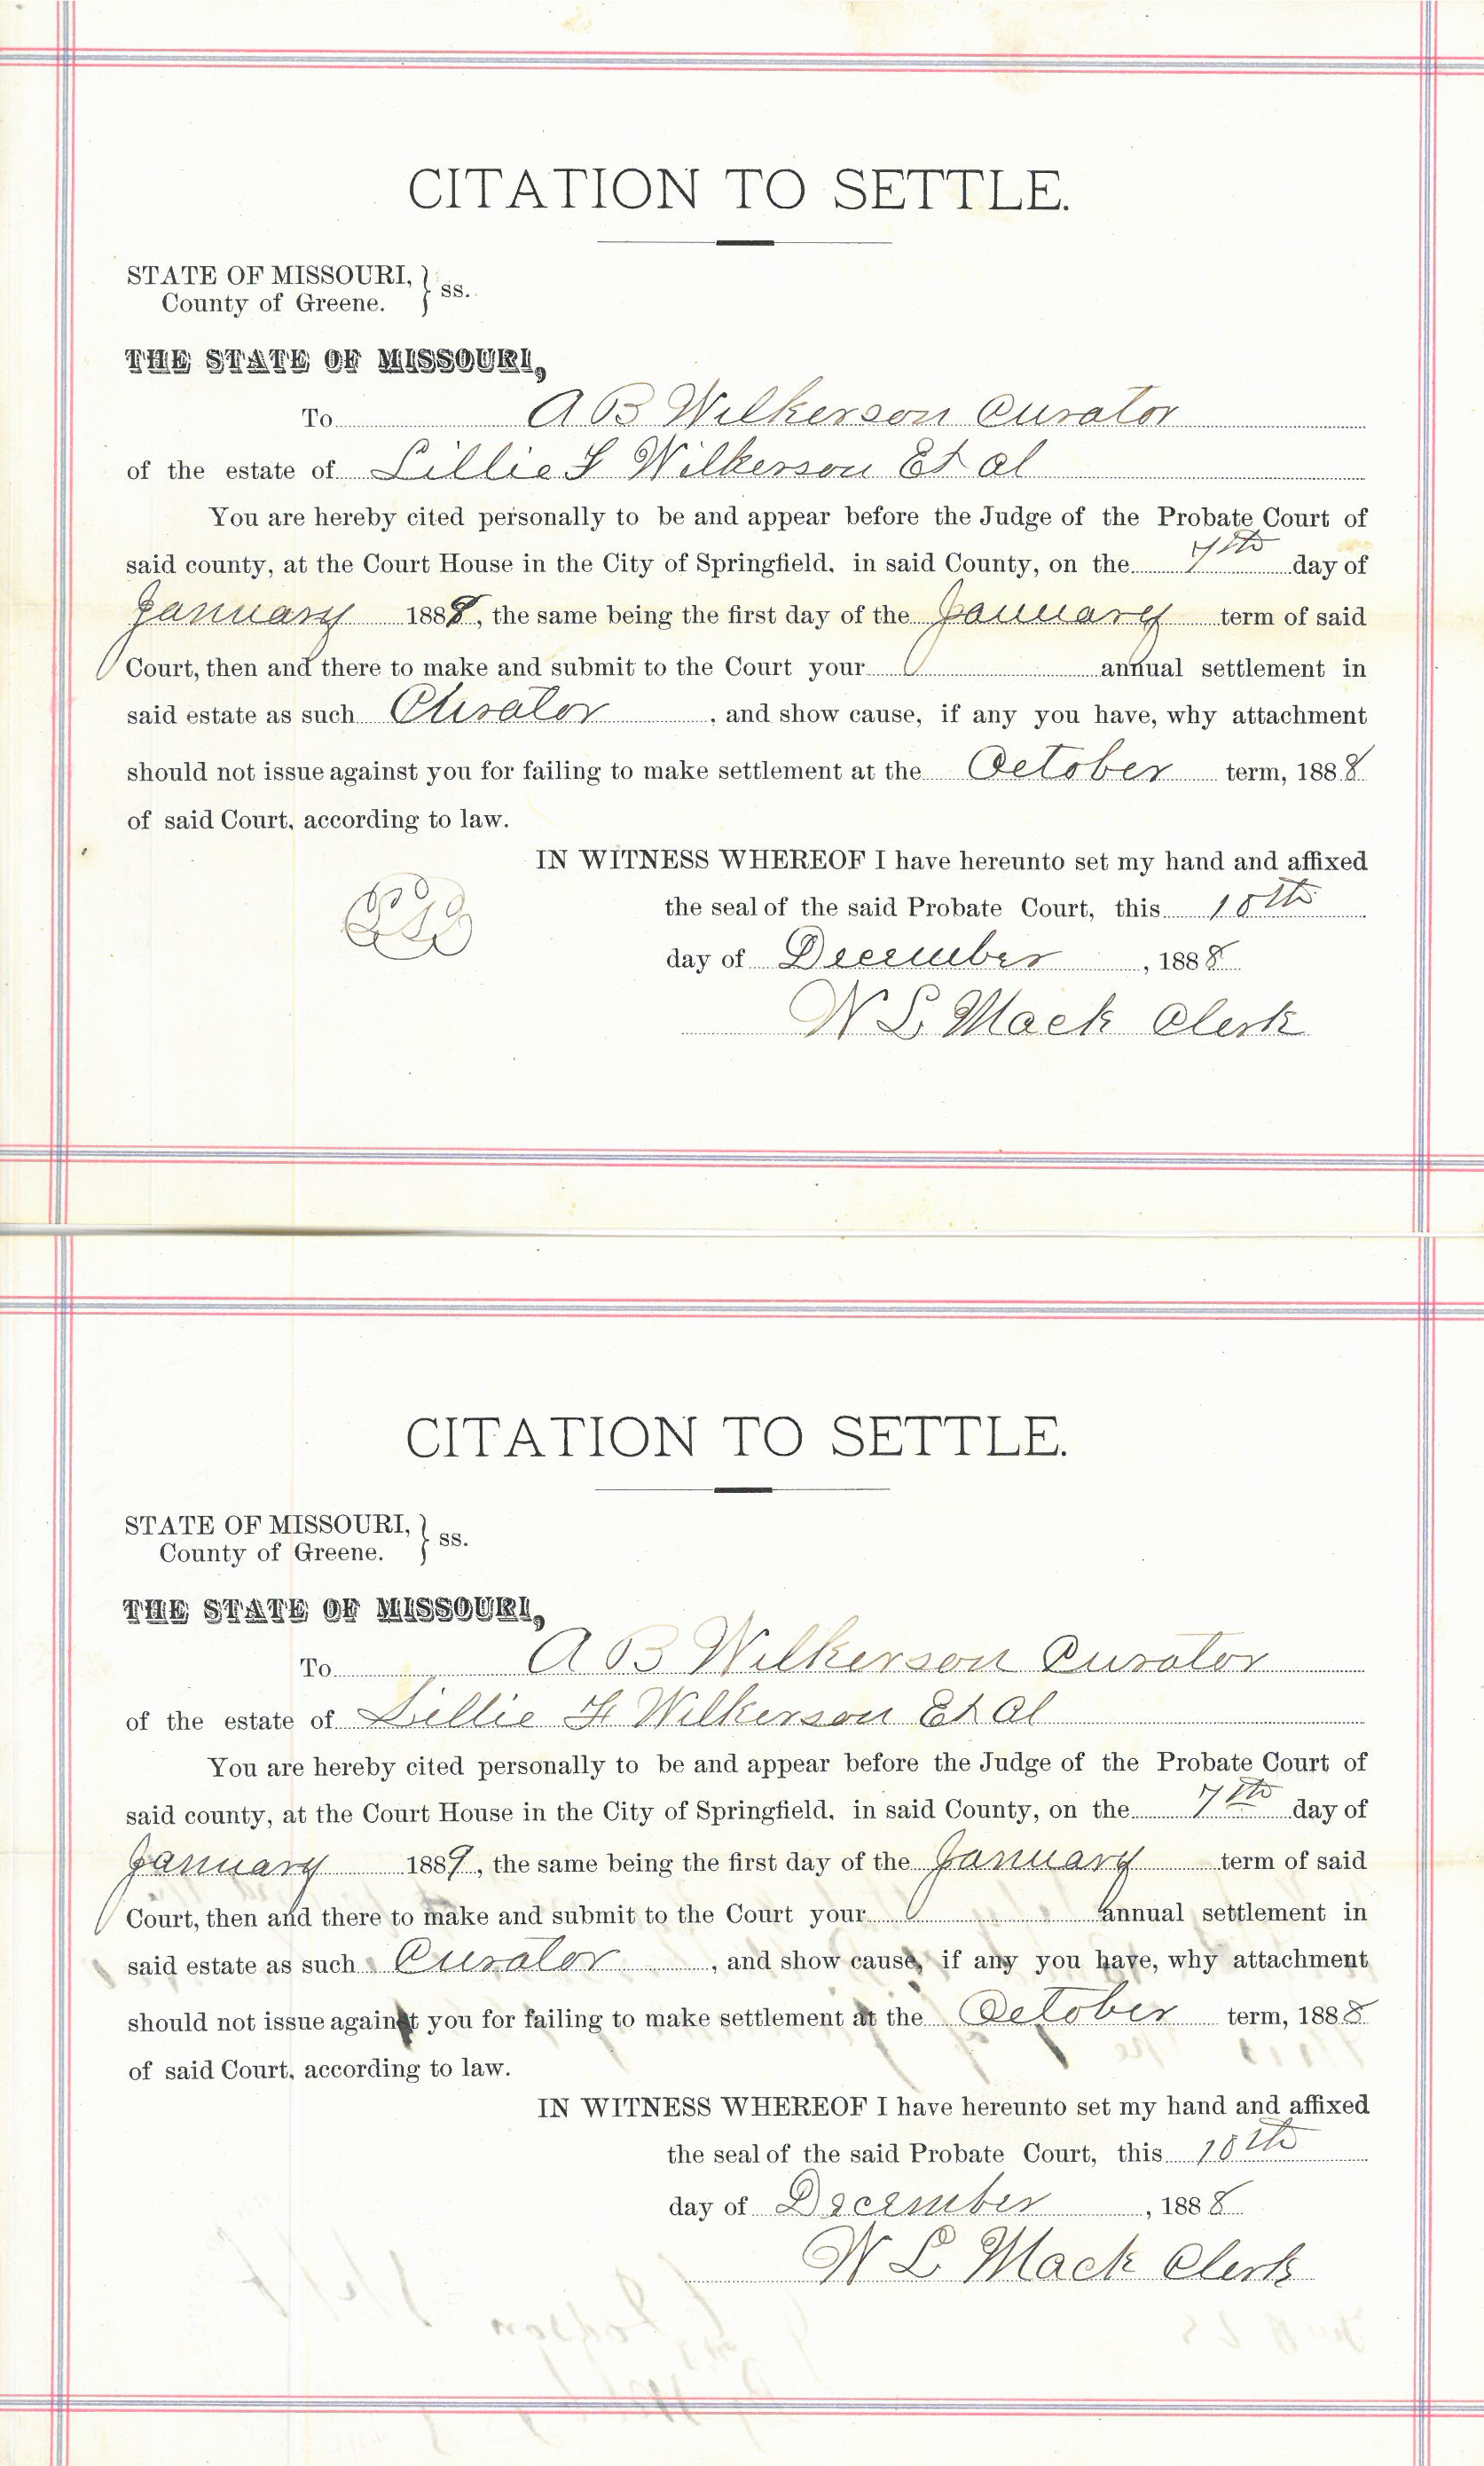 CITATION TO SETTLE.
STATE OF MISSOURI, } ss.
County of Greene.
THE STATE OF MISSOURI,
To A B Wilkerson Curator
of the estate of Lillie F Wilkerson Et al
You are hereby cited personally to be and appear before the Judge of the Probate Court of
said county, at the Court House in the City of Springfield, in said County, on the 7th day of
January 1888, the same being the first day of the January term of said
Court, then and there to make and submit to the Court your annual settlement in
said estate as such Curator, and show cause, if any you have, why attachment
should not issue against you for failing to make settlement at the October term, 1888
of said Court, according to law.
IN WITNESS WHEREOF I have hereunto set my hand and affixed
the seal of the said Probate Court, this 10th
day of December, 1888
W L Mack Clerk
CITATION TO SETTLE.
STATE OF MISSOURI, } ss.
County of Greene.
THE STATE OF MISSOURI,
To A B Wilkerson Curator
of the estate of Lillie F Wilkerson Et Al
You are hereby cited personally to be and appear before the Judge of the Probate Court of
said county, at the Court House in the City of Springfield, in said County, on the 7th day of
January 1889, the same being the first day of the January term of said
Court, then and there to make and submit to the Court your annual settlement in
said estate as such Curator, and show cause, if any you have, why attachment
should not issue against you for failing to make settlement at the October term, 1888
of said Court, according to law.
IN WITNESS WHEREOF I have hereunto set my hand and affixed
the seal of the said Probate Court, this 10th
day of December, 1888
W L Mack Clerk